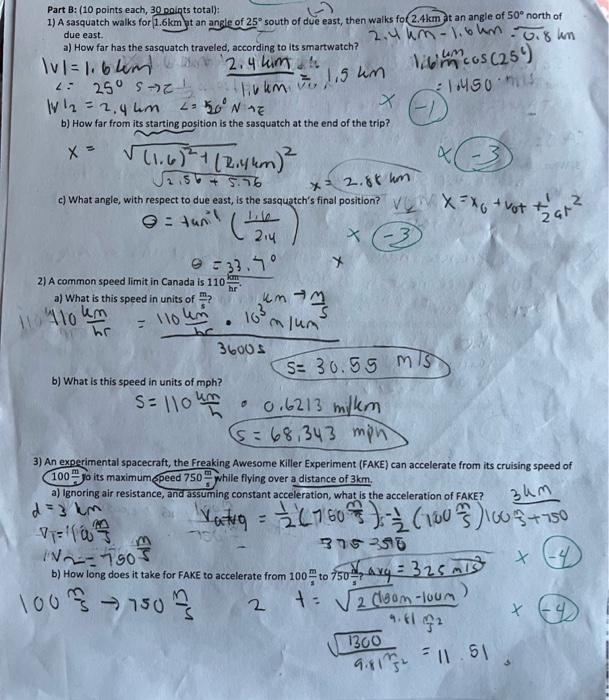 Part B: (10 points each, 30 points total):
1) A sasquatch walks for 1.6km at an angle of 25° south of due east, then walks for 2.4km at an angle of 50° north of
due east.
2.4 km - 1.6 km = 0.8 km
a) How far has the sasquatch traveled, according to its smartwatch?
|V| = 1.6 km
2.4 km
= 1.5 km
1.6 km cos(25°)
25° S → E
1.6 km
= 1.450
|V|2 = 2.4 km ∠ = 50° N → E
x -1
b) How far from its starting position is the sasquatch at the end of the trip?
x = √(1.6)² + (2.4km)²
x -3
√2.56 + 5.76
x = 2.88 km
c) What angle, with respect to due east, is the sasquatch's final position?
x = x0 + v0t + 1/2 at²
θ = tan⁻¹ (1.6/2.4)
x -3
θ = 33.7°
x
2) A common speed limit in Canada is 110 km/hr.
a) What is this speed in units of m/s?
km → m/s
110 km/hr = 110 km/hr • 10³ m/km
3600s
S = 30.55 m/s
b) What is this speed in units of mph?
S = 110 km/h • 0.6213 mi/km
S = 68.343 mph
3) An experimental spacecraft, the Freaking Awesome Killer Experiment (FAKE) can accelerate from its cruising speed of
100 m/s to its maximum speed 750 m/s while flying over a distance of 3km.
a) Ignoring air resistance, and assuming constant acceleration, what is the acceleration of FAKE?
3km
d = 3 km
Vavg = 1/2 (750 m/s) - 1/2 (100 m/s) 100 m/s + 750
V1 = 100 m/s
V2 = 750 m/s
x -4
b) How long does it take for FAKE to accelerate from 100 m/s to 750 m/s?
Vavg = 325 m/s
100 m/s → 750 m/s
2
t = √2(750m-100m)
9.81 m/s²
x -4
√1300
9.81 m/s²
= 11.51